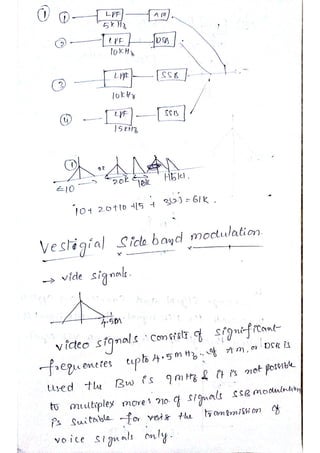 ① ① LPF AM
5kHz
② LPF DSB
10kHz
③ LPF SSB
10kHz
④ LPF SSB
15kHz
①
<10 20k 10k 15k
10+20+10+15+ 3(2)=61K.
Vestigial Side band modulation
→ vide signals.
4.5m
video signals consists of significant
frequencies upto 4.5mHz. if Am, or DSB is
used the BW is 9mHz & it is not possible
to multiplex more no. of signals SSB modulation
is suitable for the transmission of
voice signals only.